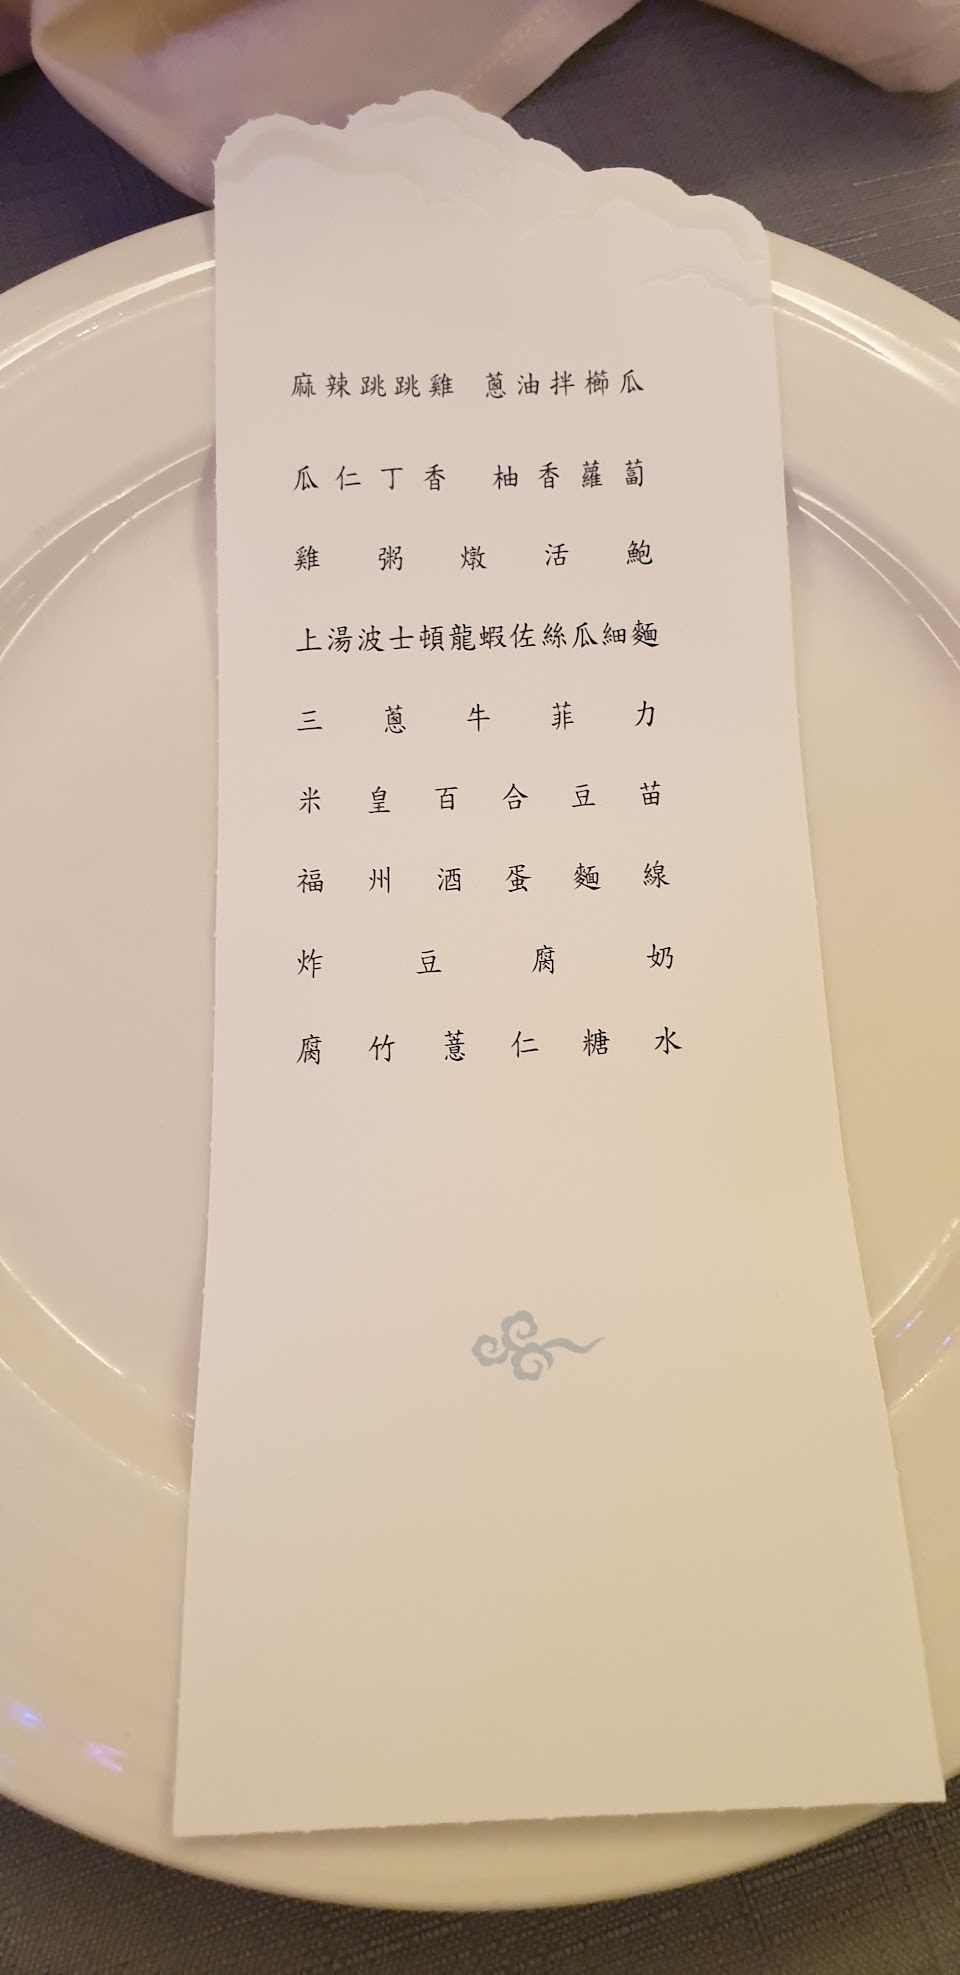 麻辣跳跳雞 蔥油拌櫛瓜
瓜仁丁香 柚香蘿蔔
雞粥燉活鮑
上湯波士頓龍蝦佐絲瓜細麵
三蔥牛菲力
米皇百合豆苗
福州酒蛋麵線
炸豆腐奶
腐竹薏仁糖水